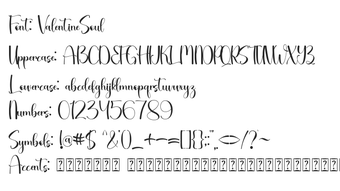 Font: ValentineSoul
Uppercase: ABCDEFGHIJKLMNOPQRSTUVWXYZ
Lowercase: abcdefghijklmnopqrstuvwxyz
Numbers: 0123456789
Symbols: !@#$ %&'()_+-=[]{}:;",.<>/?~
Accents: